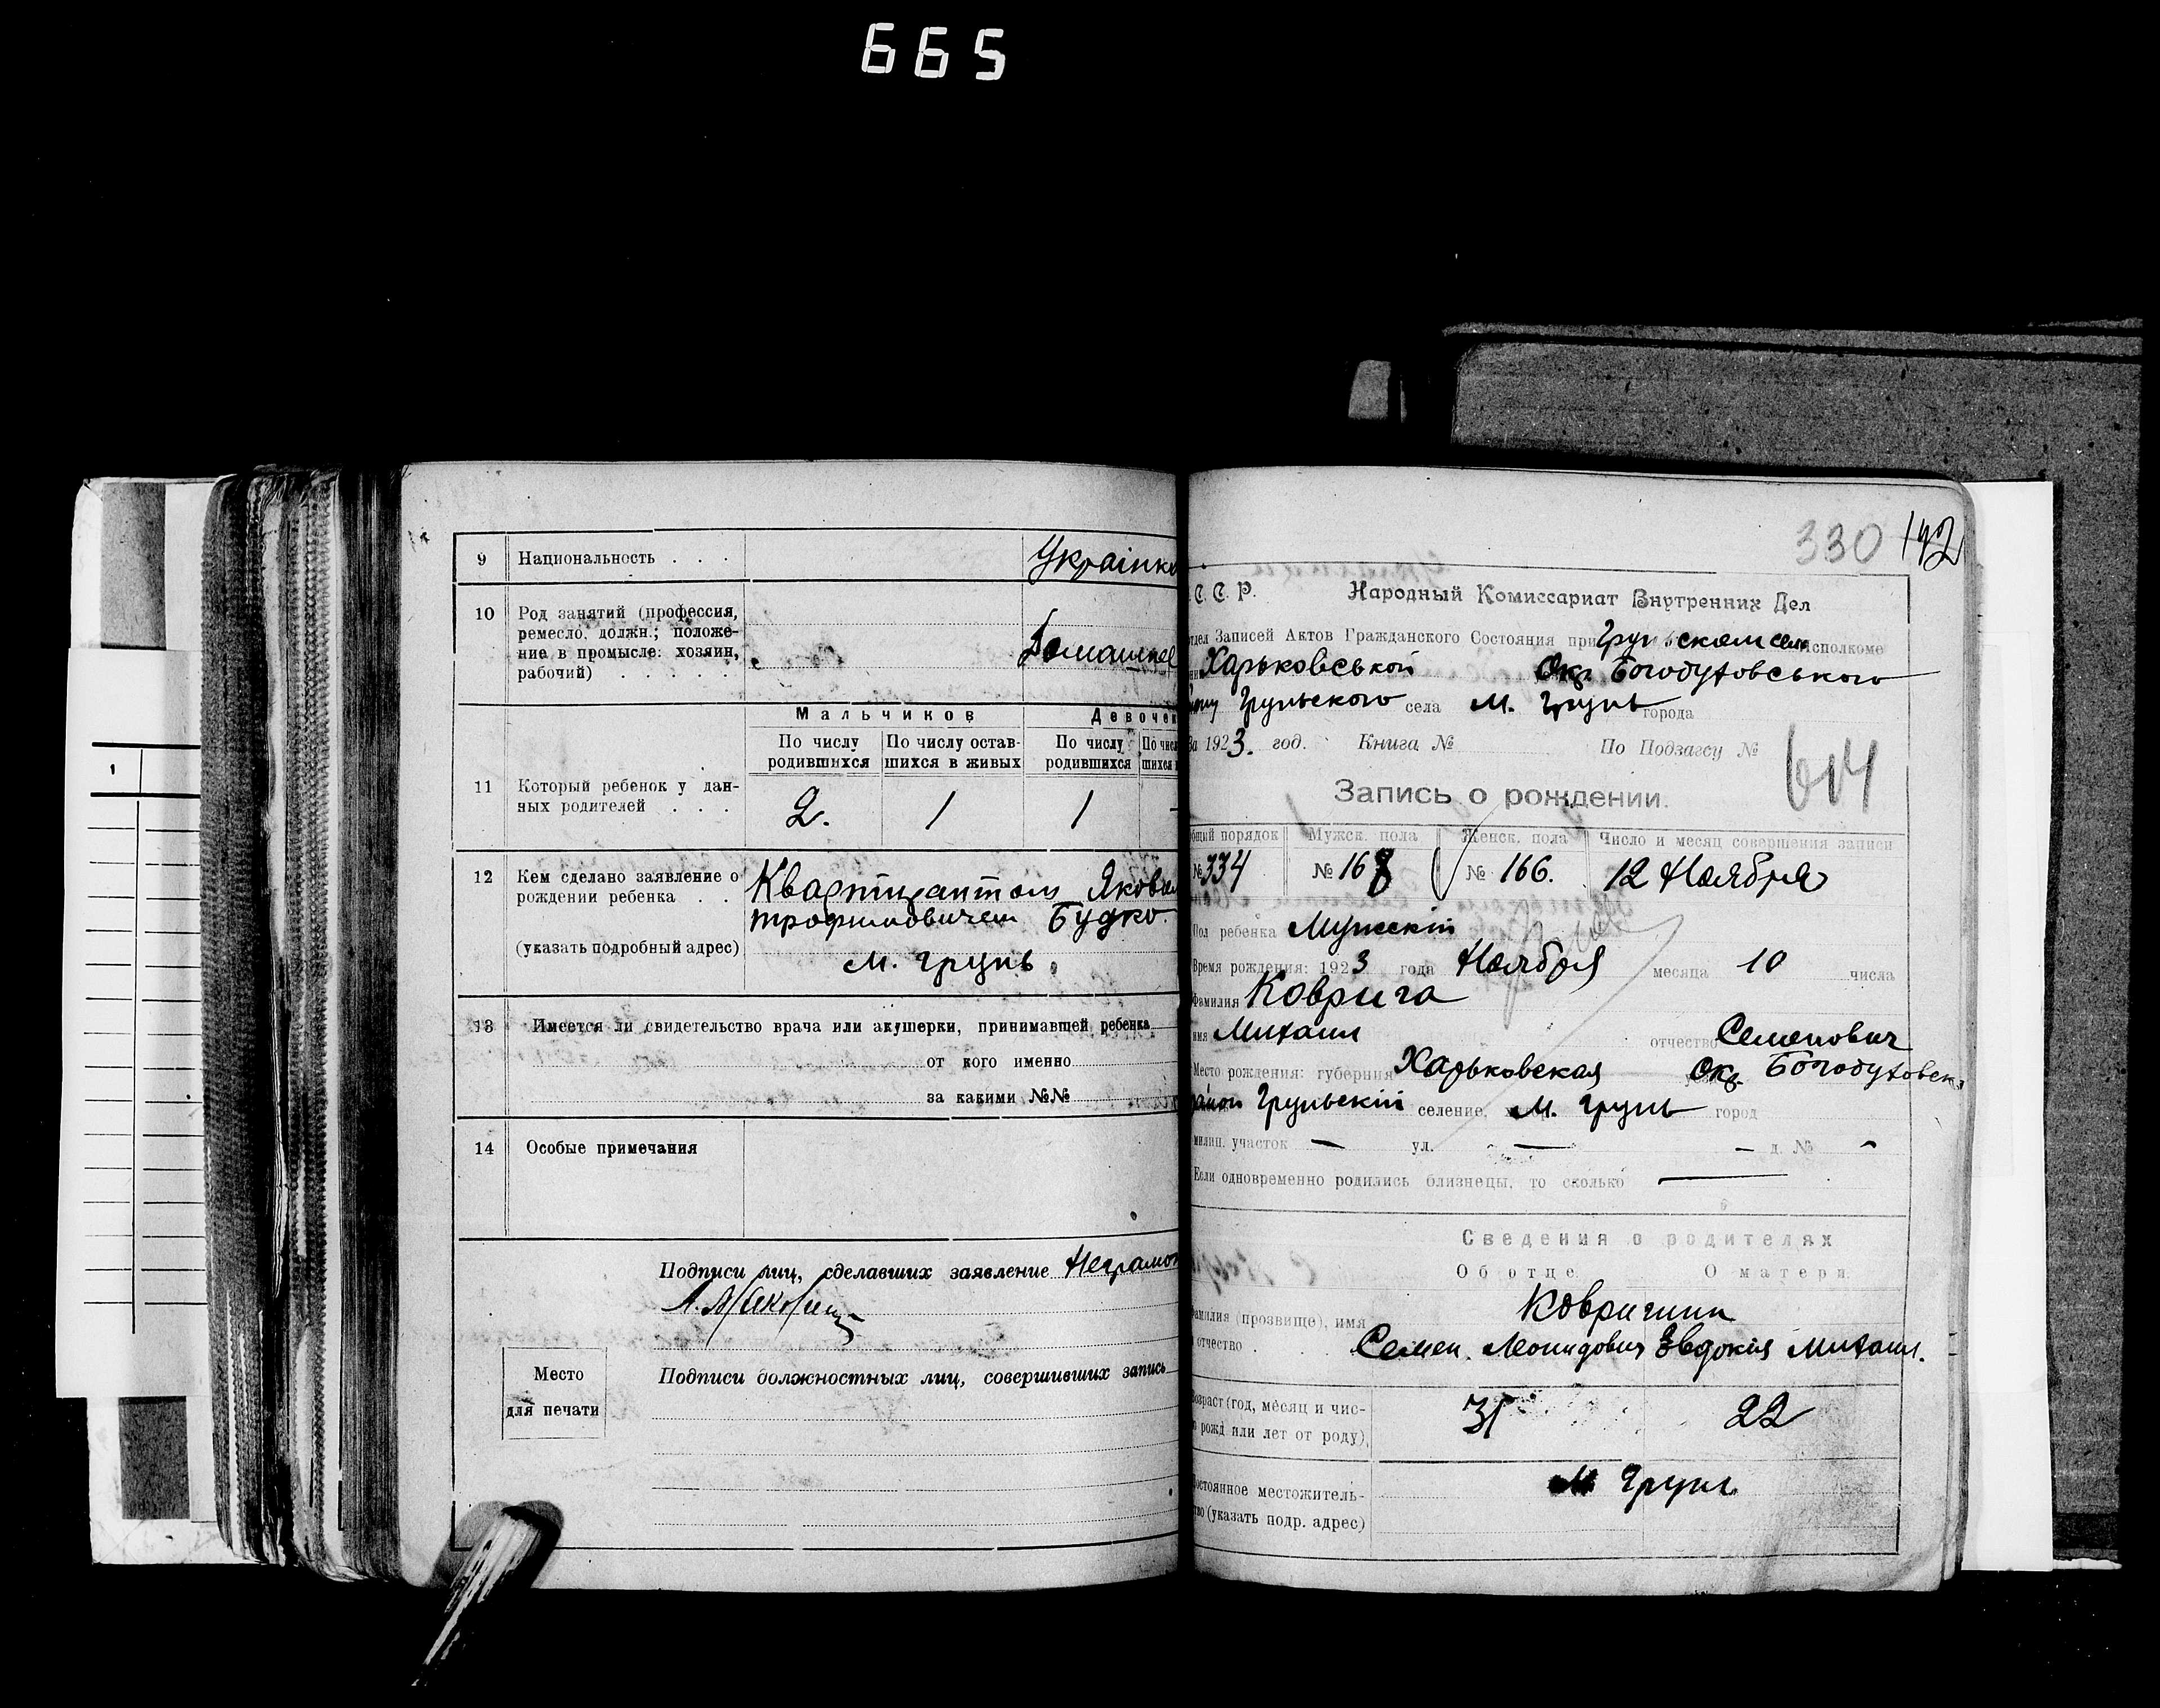 665
9 Национальность . . . Украінка
10 Род занятий (профессия,
ремесло, должн.; положе-
ние в промысле: хозяин, Домашнее
рабочий) . . . . .
Мальчиков Девочек
По числу родившихся По числу остав-шихся в живых По числу родившихся
11 Который ребенок у дан-
ных родителей . . . 2. 1 1
12 Кем сделано заявление о Квартирантом Яковом
рождении ребенка . . Трофимовичем Будко.
(указать подробный адрес) м. Грунь
13 Имеется ли свидетельство врача или акушерки, принимавшей ребенка
от кого именно
за какими №№
14 Особые примечания
Подписи лиц, сделавших заявление Неграмот
Место Подписи должностных лиц, совершивших запись
для печати
330 192
С. С. Р. Народный Комиссариат Внутренних Дел
Отдел Записей Актов Гражданского Состояния при Груньском сель исполкоме
Харьковській Окр. Богодуховського
Груньского села м. Грунь города
За 1923. год. Книга № По Подзагсу № 614
Запись о рождении.
Общий порядок Мужск. пола Женск. пола Число и месяц совершения записи
№ 334 № 168 № 166. 12 Ноября
Пол ребенка Мужскій
Время рождения: 1923 года Ноября месяца 10 числа
Фамилия Коврига
имя Михаил отчество Семенович
Место рождения: губерния Харьковская Окр. Богодуховск
район Груньскій селение, м. Грунь город
милиц. участок — ул. — — д. № -
Если одновременно родились близнецы, то сколько —
Сведения о родителях
Об отце О матери
Фамилия (прозвище), имя Ковригини
и отчество . . . Семен. Леонидович Евдокия Михаил.
Возраст (год, месяц и чис-
ло рожд или лет от роду), 31 22
Постоянное местожитель- м Грунь
ство (указать подр. адрес)